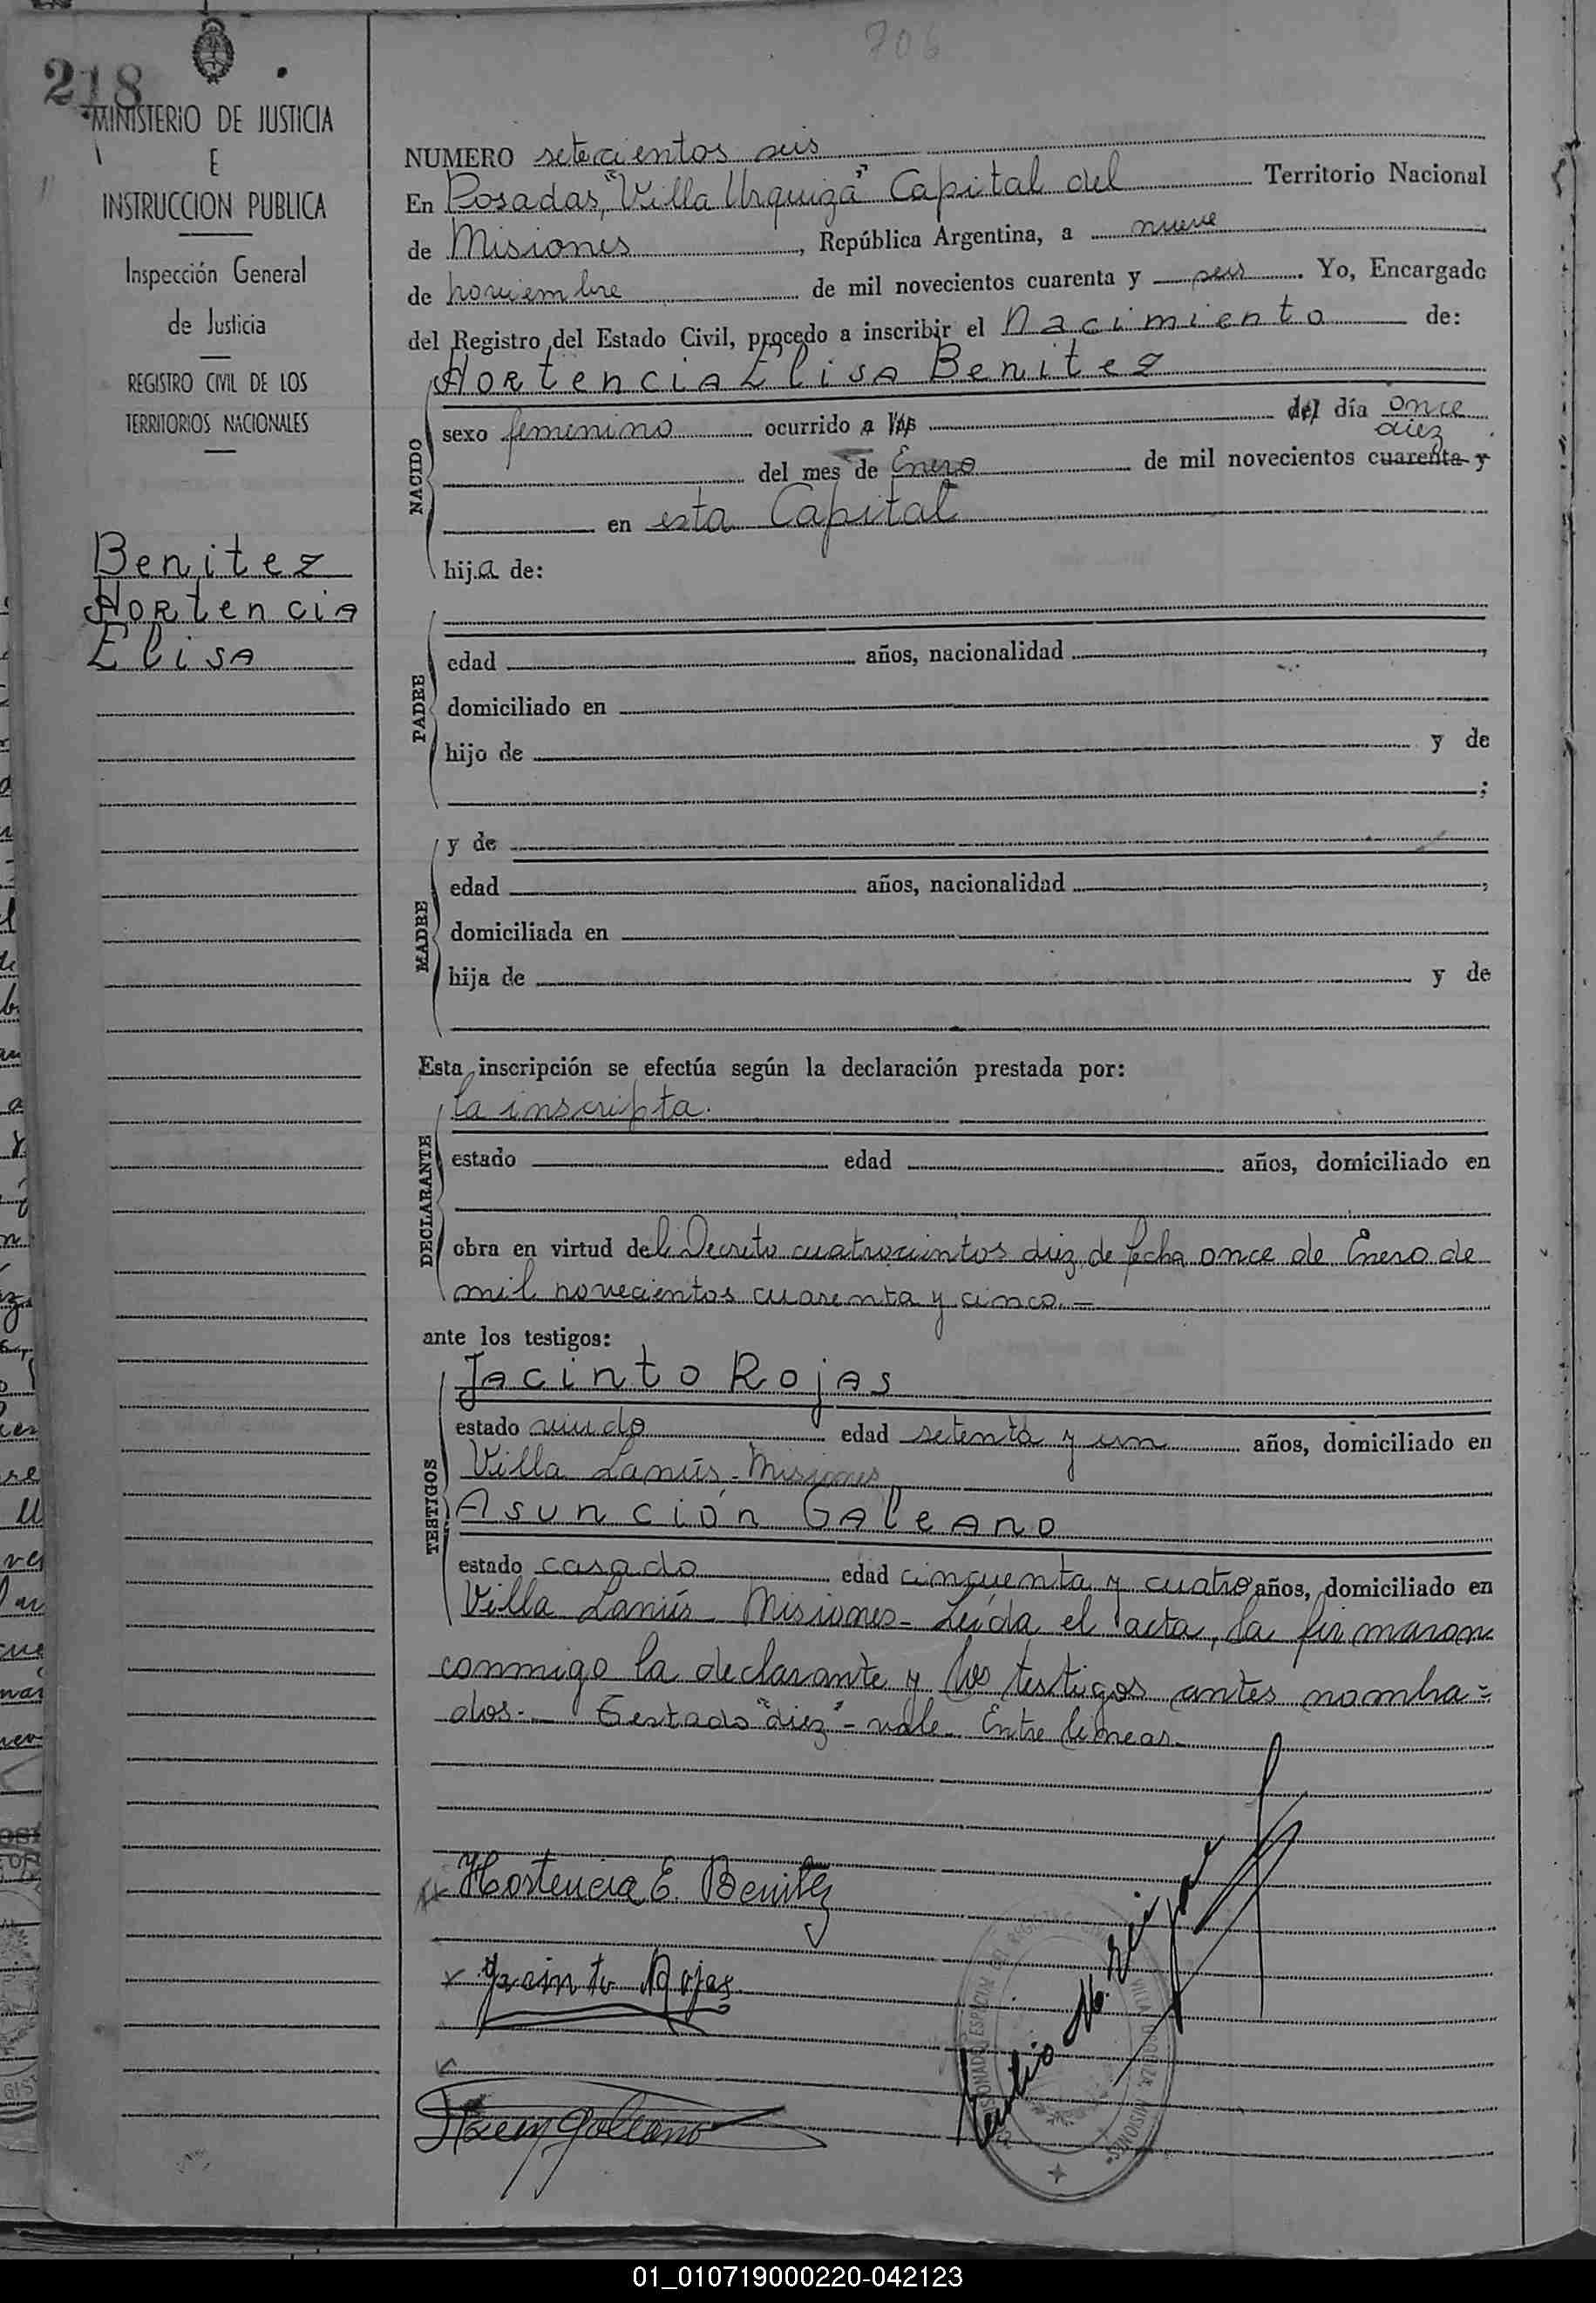 706
218
MINISTERIO DE JUSTICIA
E
INSTRUCCION PUBLICA
Inspección General
de Justicia
REGISTRO CIVIL DE LOS
TERRITORIOS NACIONALES
Benitez
Hortencia
Elisa
NUMERO setecientos seis
En Posadas, "Villa Urquiza" Capital del Territorio Nacional
de Misiones, República Argentina, a nueve
de noviembre de mil novecientos cuarenta y seis. Yo, Encargado
del Registro del Estado Civil, procedo a inscribir el Nacimiento de:
NACIDO
Hortencia Elisa Benitez
sexo femenino ocurrido a las del día once
diez
del mes de Enero de mil novecientos cuarenta y
en esta Capital
hija de:
PADRE
edad años, nacionalidad ,
domiciliado en
hijo de y de
;
MADRE
y de
edad años, nacionalidad ,
domiciliada en
hija de y de
Esta inscripción se efectúa según la declaración prestada por:
DECLARANTE
la inscripta.
estado edad años, domiciliado en
obra en virtud del Decreto cuatrocientos diez de fecha once de Enero de
mil novecientos cuarenta y cinco.-
ante los testigos:
TESTIGOS
Jacinto Rojas
estado viudo edad setenta y un años, domiciliado en
Villa Lanús - Misiones
Asunción Galeano
estado casado edad cincuenta y cuatro años, domiciliado en
Villa Lanús - Misiones - Leída el acta, la firmaron
conmigo la declarante y los testigos antes nombra=
dos.- Testado "diez" - vale. Entre lineas.-
Hortencia E. Benitez
Jacinto Rojas
Galeano
01_010719000220-042123